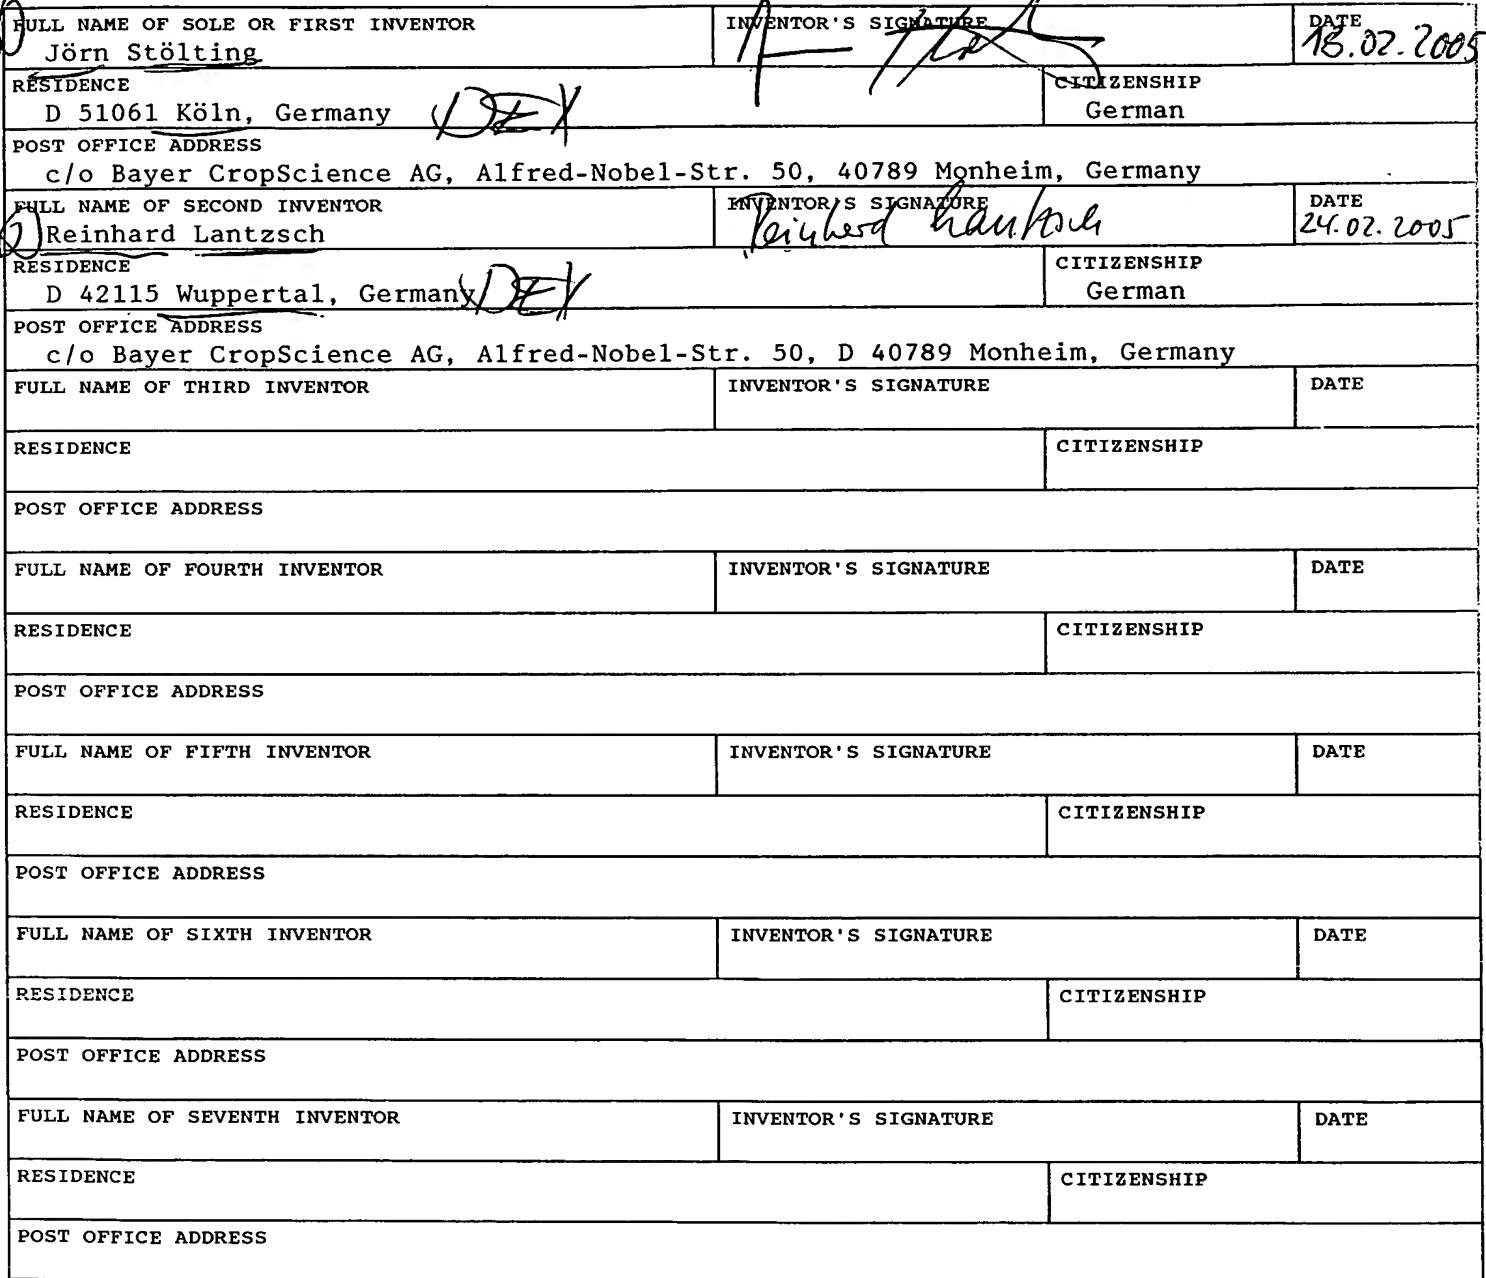 FULL NAME OF SOLE OR FIRST INVENTOR INVENTOR'S SIGNATURE DATE
Jörn Stölting 18.02.2005
RESIDENCE CITIZENSHIP
D 51061 Köln, Germany DEX German
POST OFFICE ADDRESS
c/o Bayer CropScience AG, Alfred-Nobel-Str. 50, 40789 Monheim, Germany
FULL NAME OF SECOND INVENTOR INVENTOR'S SIGNATURE DATE
Reinhard Lantzsch Reinhard Lantzsch 24.02.2005
RESIDENCE CITIZENSHIP
D 42115 Wuppertal, Germany DEX German
POST OFFICE ADDRESS
c/o Bayer CropScience AG, Alfred-Nobel-Str. 50, D 40789 Monheim, Germany
FULL NAME OF THIRD INVENTOR INVENTOR'S SIGNATURE DATE
RESIDENCE CITIZENSHIP
POST OFFICE ADDRESS
FULL NAME OF FOURTH INVENTOR INVENTOR'S SIGNATURE DATE
RESIDENCE CITIZENSHIP
POST OFFICE ADDRESS
FULL NAME OF FIFTH INVENTOR INVENTOR'S SIGNATURE DATE
RESIDENCE CITIZENSHIP
POST OFFICE ADDRESS
FULL NAME OF SIXTH INVENTOR INVENTOR'S SIGNATURE DATE
RESIDENCE CITIZENSHIP
POST OFFICE ADDRESS
FULL NAME OF SEVENTH INVENTOR INVENTOR'S SIGNATURE DATE
RESIDENCE CITIZENSHIP
POST OFFICE ADDRESS